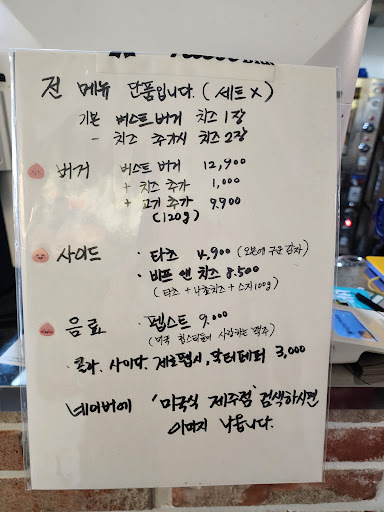 전 메뉴 단품입니다. (세트 X)
기본 버스트 버거 치즈 1장
- 치즈 추가시 치즈 2장
버거 버스트 버거 12,900
+ 치즈 추가 1,000
+ 고기 추가 9,900
(120g)
사이드 · 타츠 4,900 (오븐에 구운 감자)
· 비프 앤 치즈 8,500
(타츠 + 나쵸치즈 + 소고기 100g)
음료 · 펩스트 9,000
(미국 힙스터들이 사랑하는 맥주)
· 콜라, 사이다, 제로펩시, 닥터페퍼 3,000
네이버에 '미국식 제주점' 검색하시면
이미지 나옵니다.